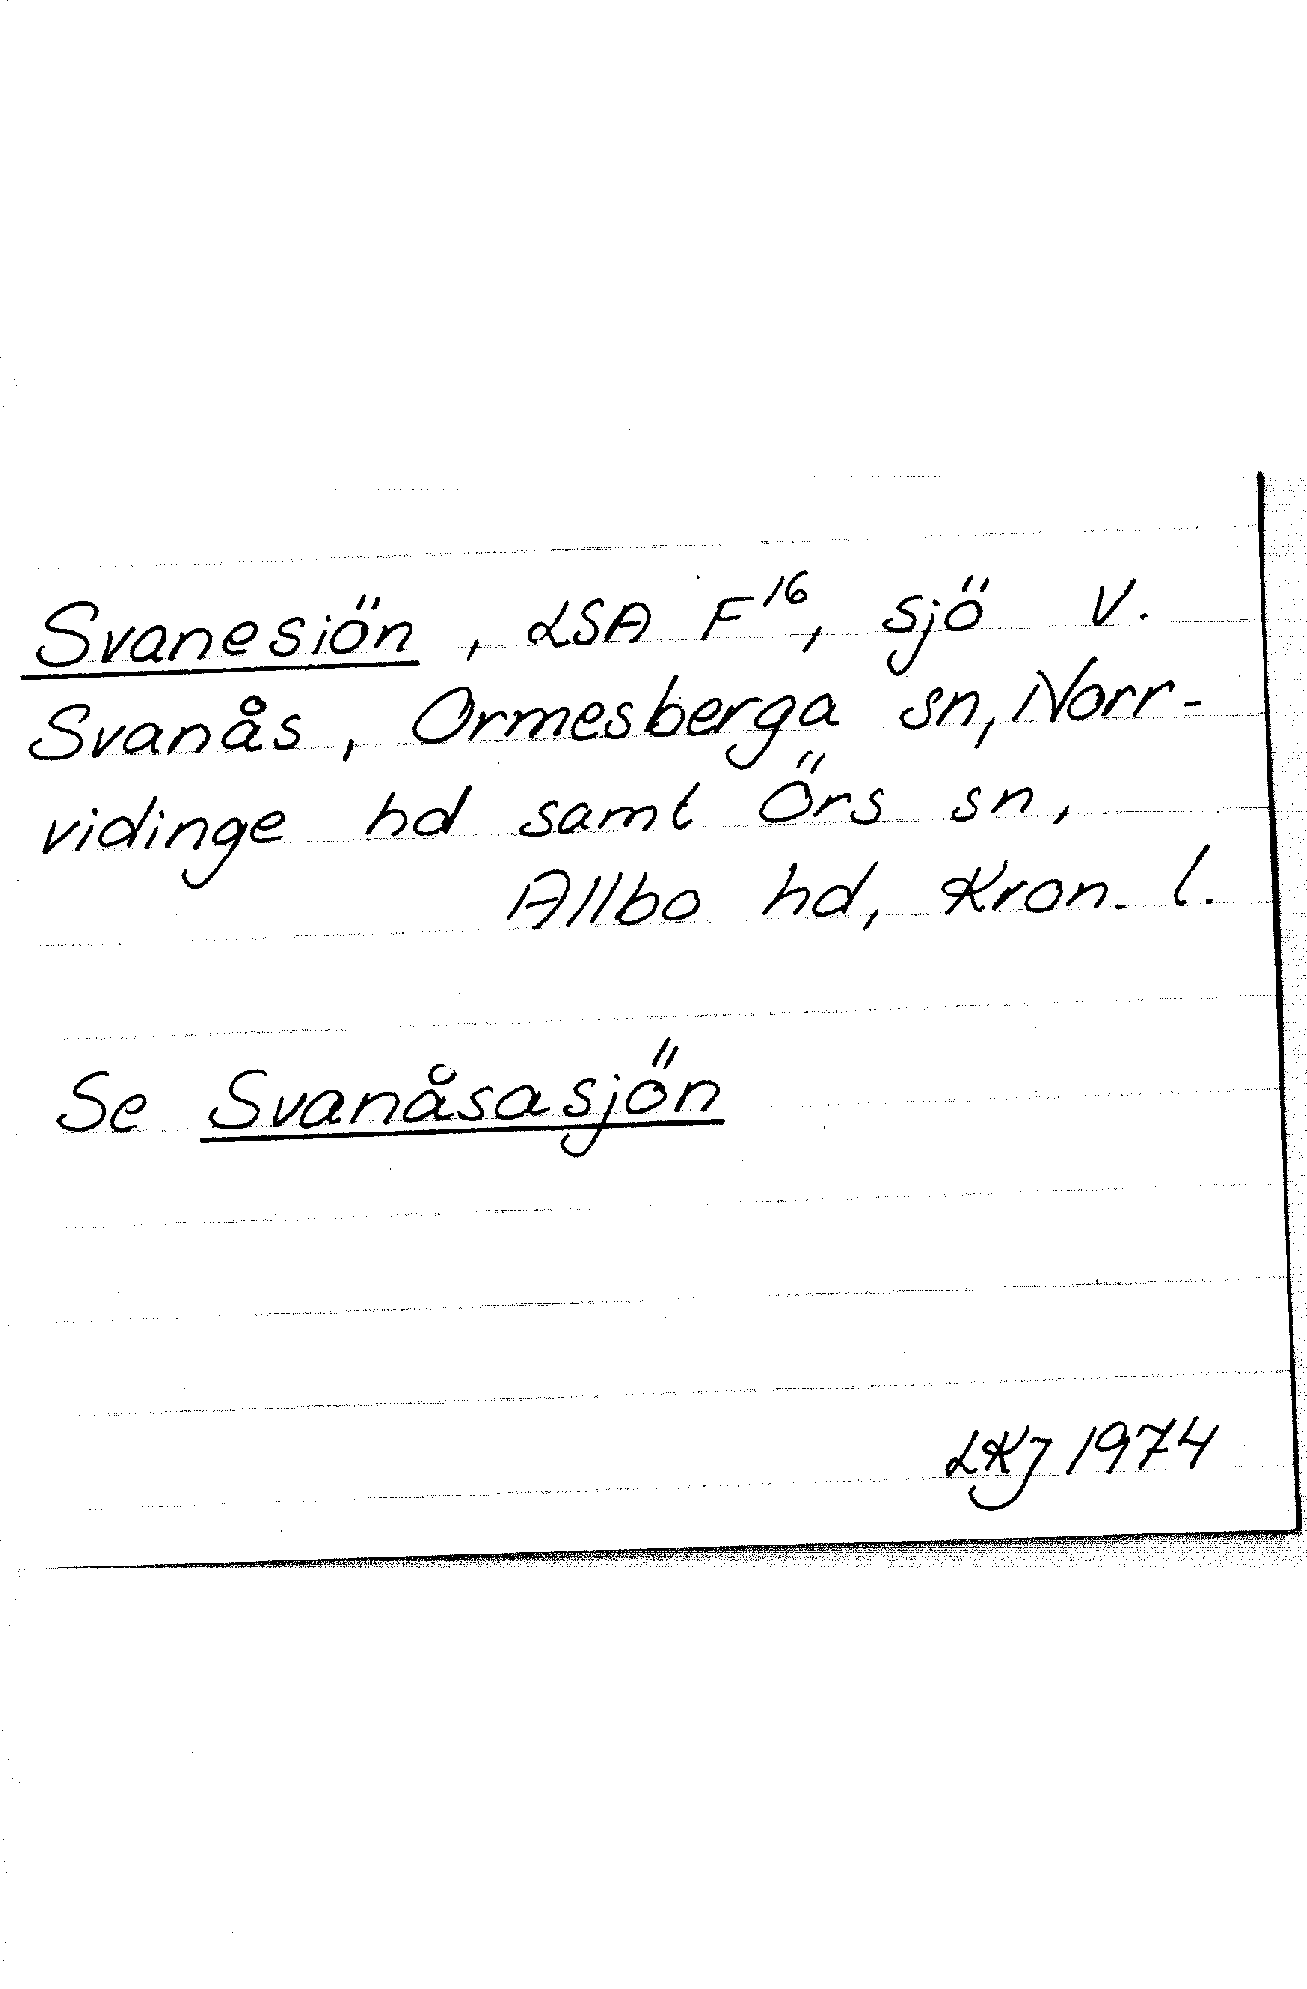 Svanesiön, LSA F¹⁶, sjö V.
Svanås, Ormesberga sn, Norr-
vidinge hd samt Örs sn,
Allbo hd, Kron. l.
Se Svanåsasjön
LKJ 1974